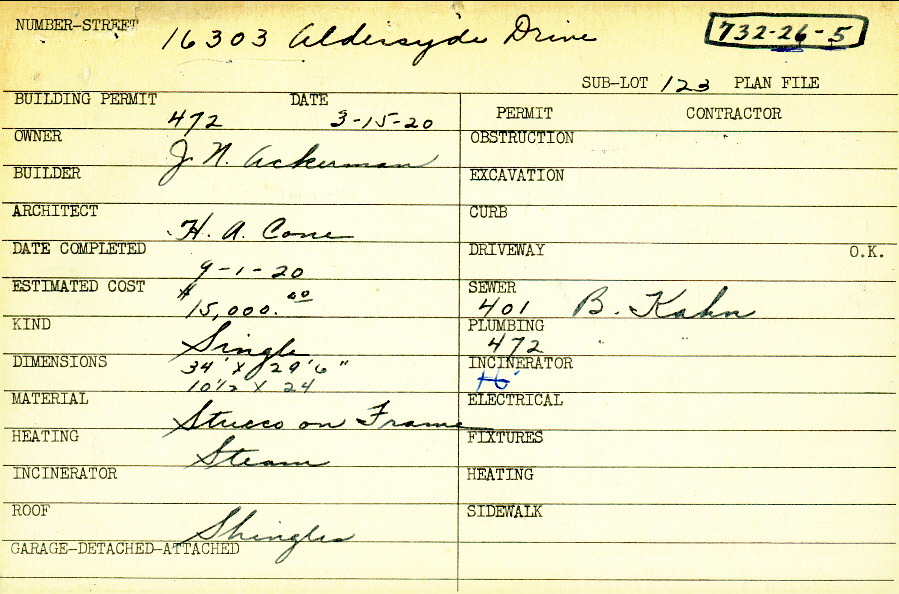 NUMBER-STREET 16303 Aldersyde Drive 732-26-5
SUB-LOT 123 PLAN FILE
BUILDING PERMIT 472 DATE 3-15-20
PERMIT CONTRACTOR
OWNER J. N. Ackerman
OBSTRUCTION
BUILDER
EXCAVATION
ARCHITECT H. A. Cone
CURB
DATE COMPLETED 9-1-20
DRIVEWAY O.K.
ESTIMATED COST $15,000.00
SEWER 401 B. Kahn
KIND Single
PLUMBING 472 " "
DIMENSIONS 34' X 29'6"
10 1/2 X 24
INCINERATOR
MATERIAL Stucco on Frame
ELECTRICAL
HEATING Steam
FIXTURES
INCINERATOR
HEATING
ROOF Shingles
SIDEWALK
GARAGE-DETACHED-ATTACHED